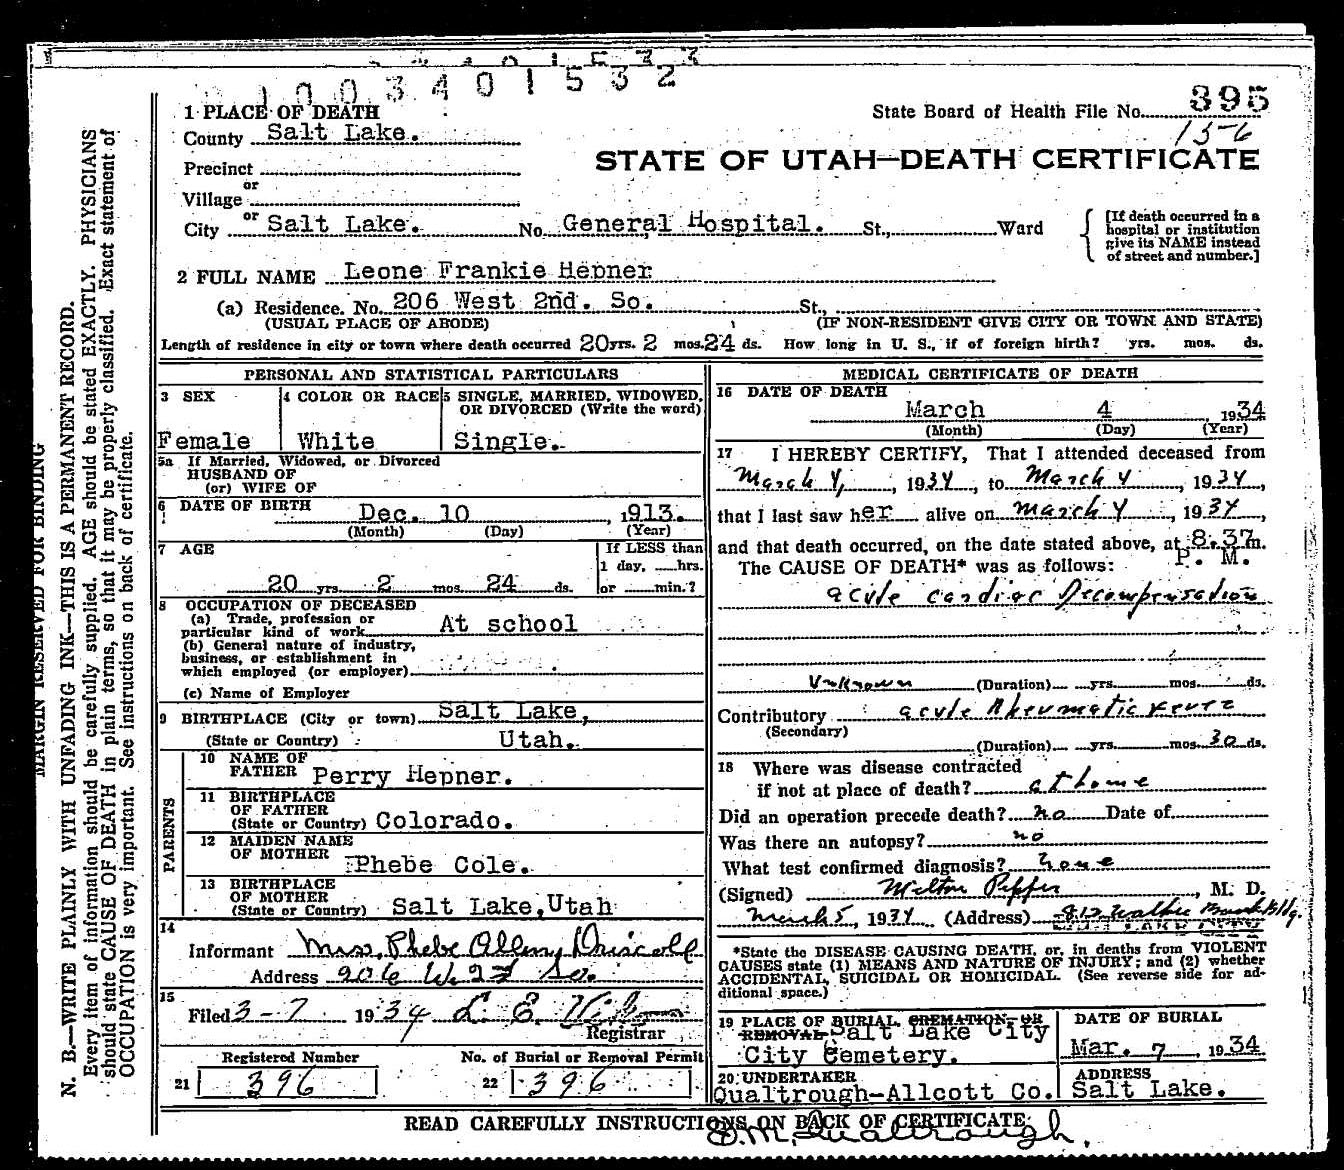 1003401532
1 PLACE OF DEATH
State Board of Health File No. 395
County Salt Lake.
156
STATE OF UTAH—DEATH CERTIFICATE
Precinct
or
Village
or
City Salt Lake. No. General Hospital. St., Ward
[If death occurred in a hospital or institution give its NAME instead of street and number.]
2 FULL NAME Leone Frankie Hepner
(a) Residence. No. 206 West 2nd. So. St.,
(USUAL PLACE OF ABODE) (IF NON-RESIDENT GIVE CITY OR TOWN AND STATE)
Length of residence in city or town where death occurred 20 yrs. 2 mos. 24 ds. How long in U. S., if of foreign birth? yrs. mos. ds.
PERSONAL AND STATISTICAL PARTICULARS
3 SEX
Female
4 COLOR OR RACE
White
5 SINGLE, MARRIED, WIDOWED, OR DIVORCED (Write the word)
Single.
5a If Married, Widowed, or Divorced
HUSBAND OF
(or) WIFE OF
6 DATE OF BIRTH
Dec. 10, 1913.
(Month) (Day) (Year)
7 AGE
20 yrs. 2 mos. 24 ds.
If LESS than
1 day, hrs.
or min.?
8 OCCUPATION OF DECEASED
(a) Trade, profession or
particular kind of work At school
(b) General nature of industry,
business, or establishment in
which employed (or employer)
(c) Name of Employer
9 BIRTHPLACE (City or town) Salt Lake,
(State or Country) Utah.
PARENTS
10 NAME OF
FATHER Perry Hepner.
11 BIRTHPLACE
OF FATHER
(State or Country) Colorado.
12 MAIDEN NAME
OF MOTHER Phebe Cole.
13 BIRTHPLACE
OF MOTHER
(State or Country) Salt Lake, Utah
14
Informant Mrs. Phebe Driscoll
Address 206 W. 2d So.
15
Filed 3-7 1934
Registrar
Registered Number
21 396
No. of Burial or Removal Permit
22 396
MEDICAL CERTIFICATE OF DEATH
16 DATE OF DEATH
March 4 1934
(Month) (Day) (Year)
17 I HEREBY CERTIFY, That I attended deceased from
March 4, 1934, to March 4, 1934,
that I last saw her alive on March 4, 1934,
and that death occurred, on the date stated above, at 8.37 m.
P. M.
The CAUSE OF DEATH* was as follows:
acute cardiac Decompensation
Unknown (Duration) yrs. mos. ds.
Contributory acute Rheumatic Fever
(Secondary)
(Duration) yrs. mos. 30 ds.
18 Where was disease contracted
if not at place of death? at home
Did an operation precede death? no Date of
Was there an autopsy? no
What test confirmed diagnosis? none
(Signed) Milton Pepper, M. D.
March 5, 1934 (Address) 812 Walker Bank Bldg.
*State the DISEASE CAUSING DEATH, or, in deaths from VIOLENT
CAUSES state (1) MEANS AND NATURE OF INJURY; and (2) whether
ACCIDENTAL, SUICIDAL OR HOMICIDAL. (See reverse side for ad-
ditional space.)
19 PLACE OF BURIAL, CREMATION, OR
REMOVAL Salt Lake City
City Cemetery.
DATE OF BURIAL
Mar. 7, 1934
20 UNDERTAKER
Qualtrough-Allcott Co.
ADDRESS
Salt Lake.
READ CAREFULLY INSTRUCTIONS ON BACK OF CERTIFICATE
D.M. Qualtrough.
MARGIN RESERVED FOR BINDING
N. B.—WRITE PLAINLY WITH UNFADING INK—THIS IS A PERMANENT RECORD.
Every item of information should be carefully supplied. AGE should be stated EXACTLY. PHYSICIANS
should state CAUSE OF DEATH in plain terms, so that it may be properly classified. Exact statement of
OCCUPATION is very important. See instructions on back of certificate.